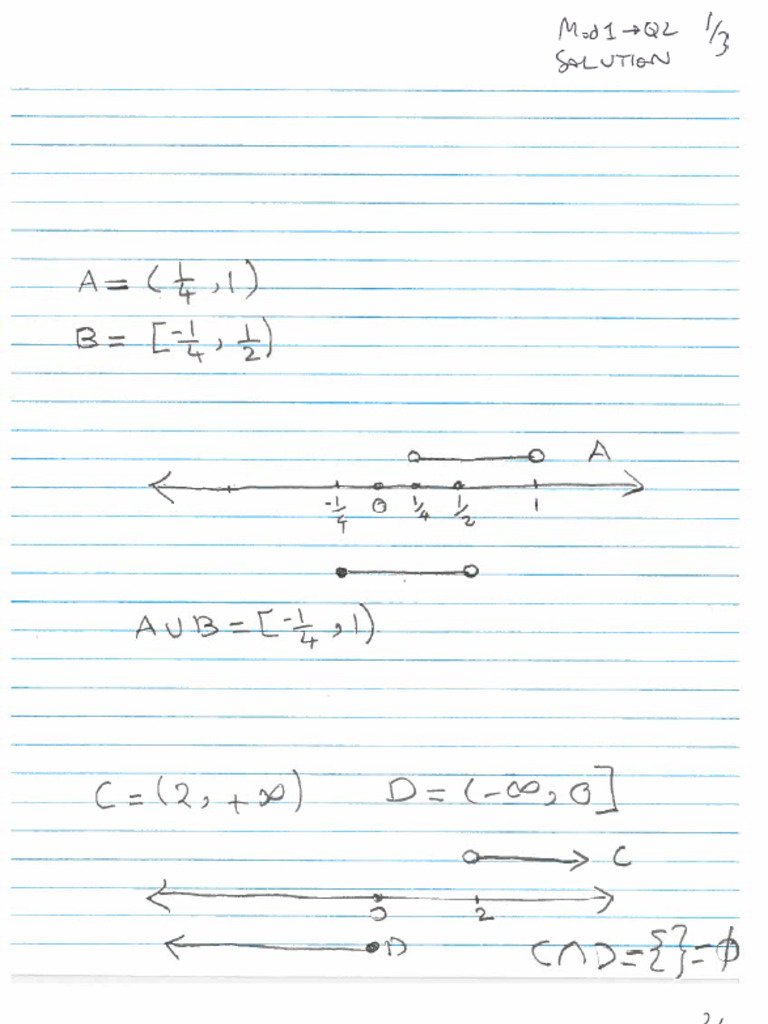 Mod1→Q2 1/3
SOLUTION
A = (1/4, 1)
B = [-1/4, 1/2)
A
-1/4 0 1/4 1/2 1
A∪B = [-1/4, 1)
C = (2, +∞) D = (-∞, 0]
C
0 2
D C∩D = {} = ϕ